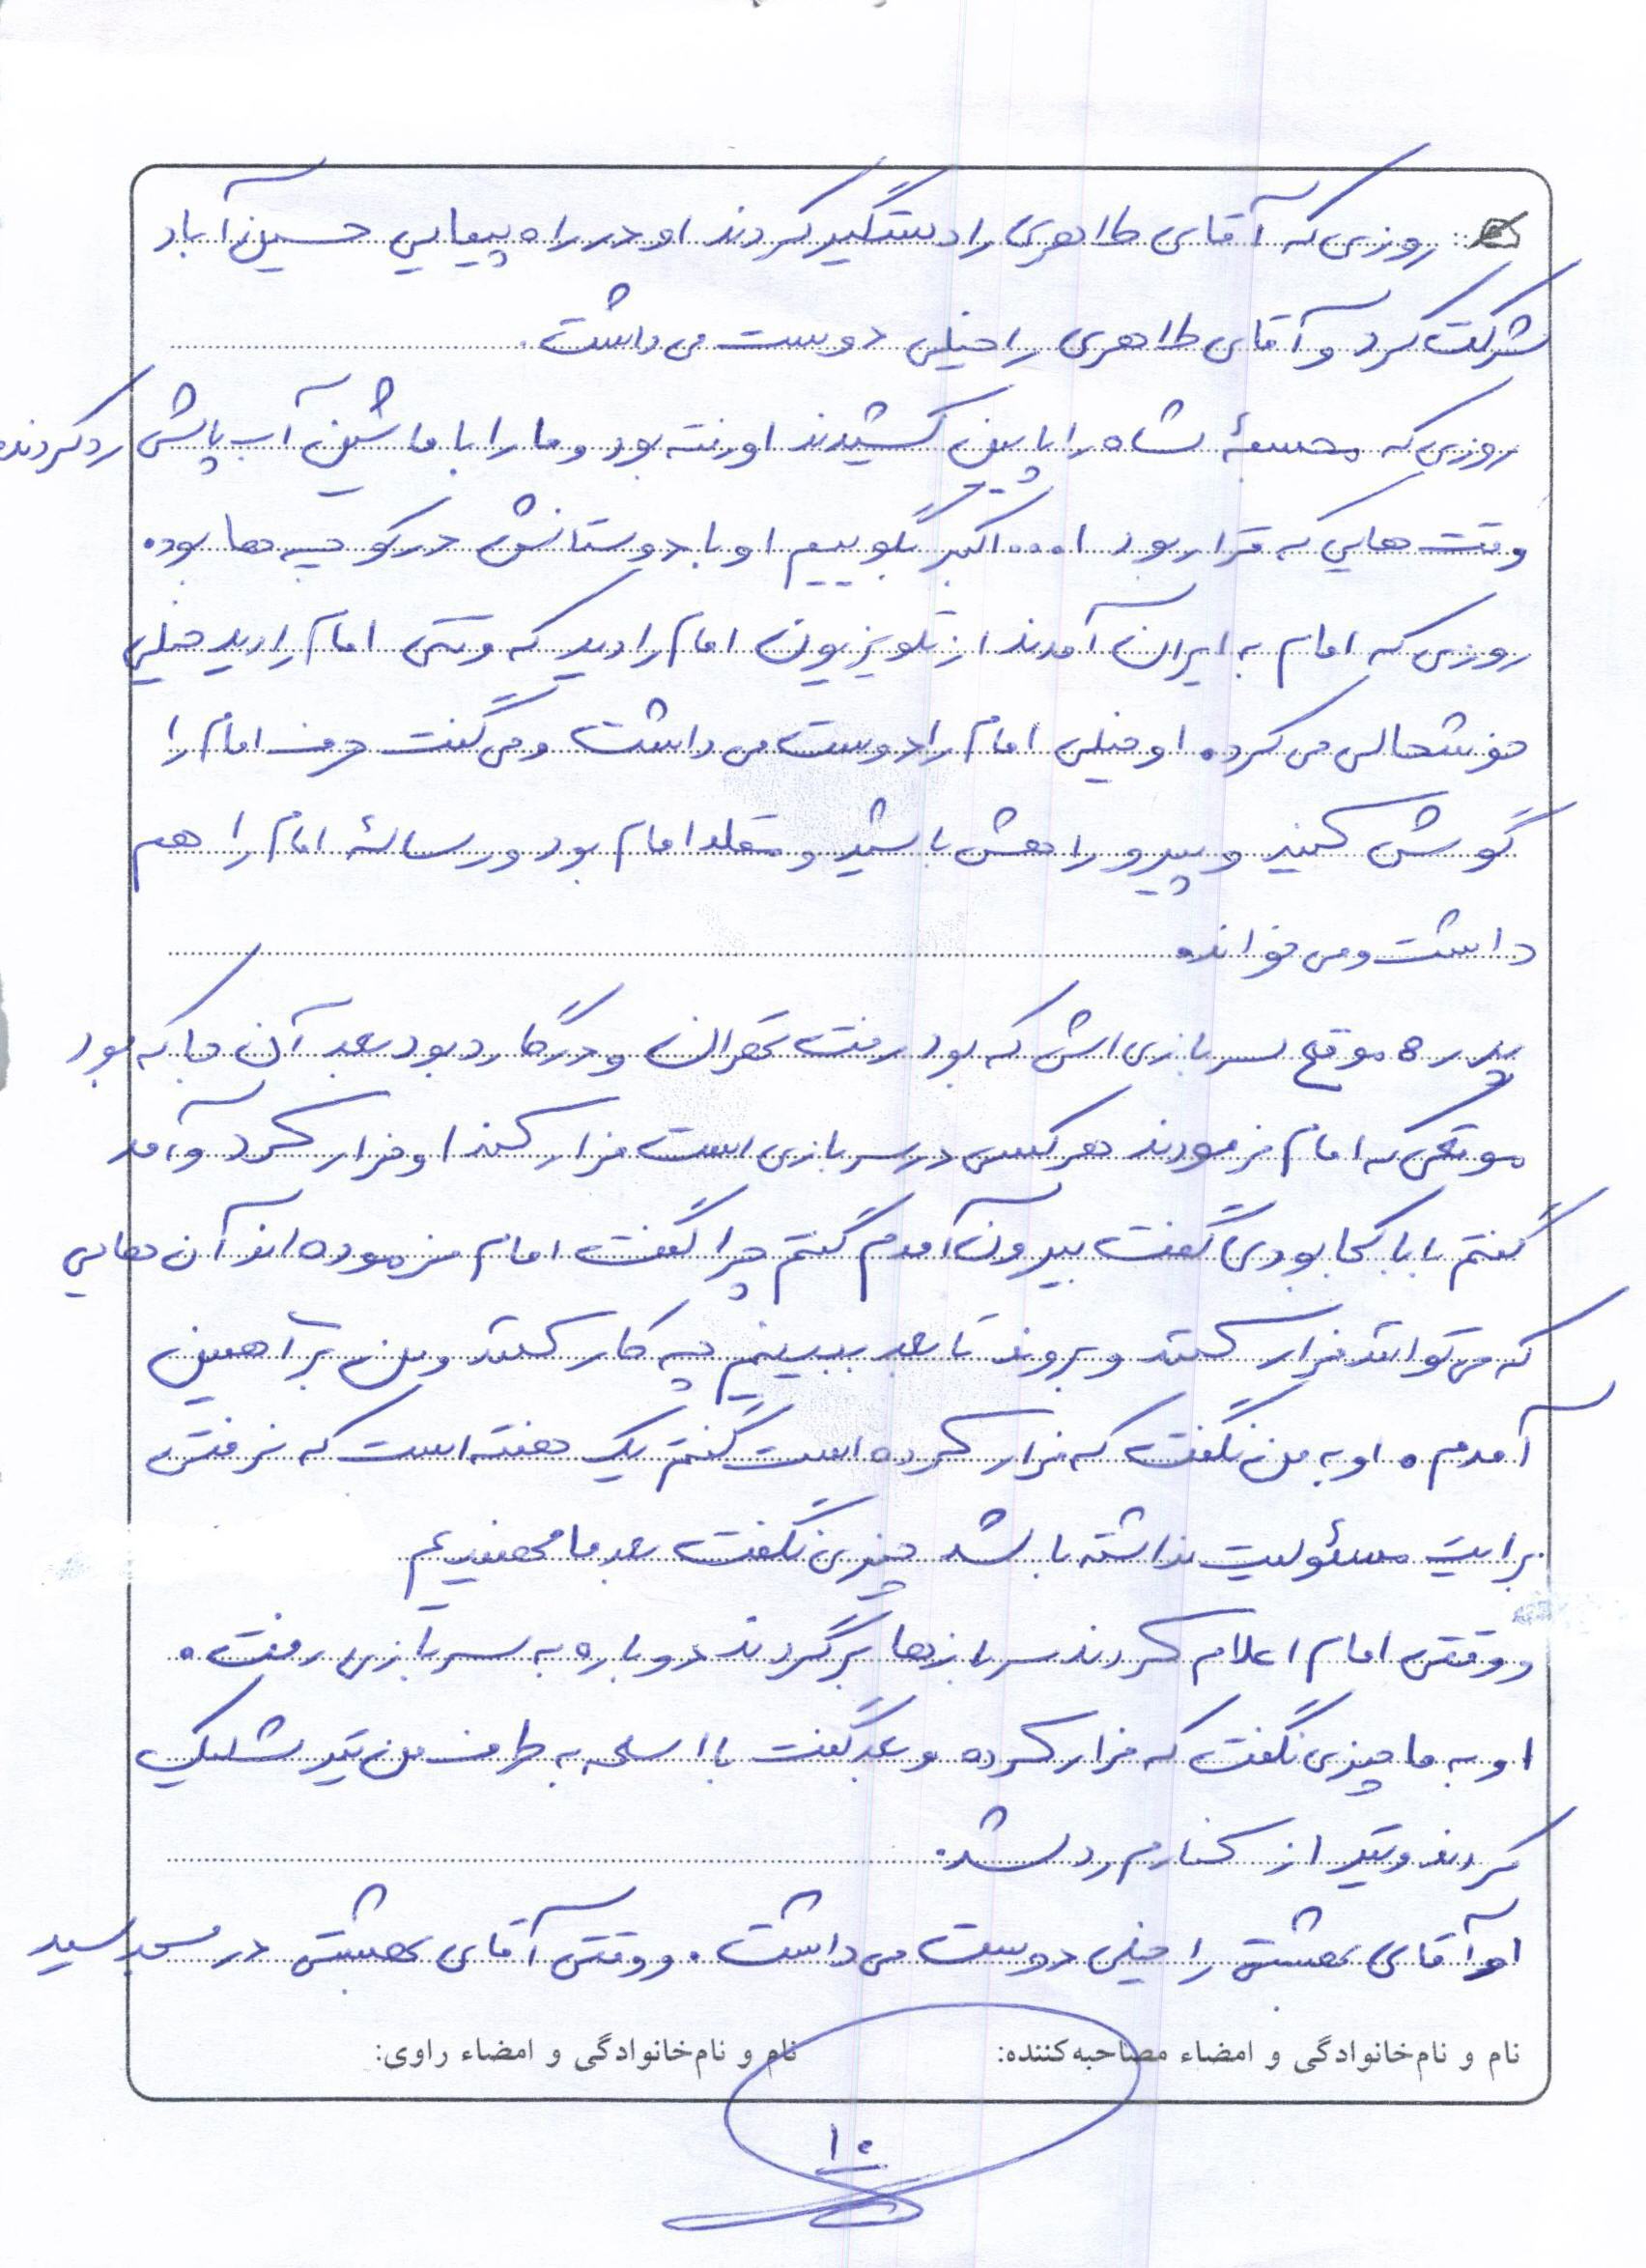 روزی که آقای طاهری را دستگیر کردند او در راه پیمایی حسین آباد
شرکت کرد و آقای طاهری را خیلی دوست می داشت.
روزی که مجسمهٔ شاه را پایین کشیدند او رفته بود و ما را با ماشین آب پاش رد کردند.
وقت هایی که قرار بود ا... اکبر بگوییم او با دوستانش در کوچه ها بود.
روزی که امام به ایران آمدند از تلویزیون امام را دید که وقتی امام را دید خیلی
خوشحالی می کرد. او خیلی امام را دوست می داشت و می گفت حرف امام را
گوش کنید و پیرو راهش باشید و مقلد امام بود و رسالهٔ امام را هم
داشت و می خواند.
موقع سربازی اش که بود رفت تهران و در گارد بود بعد آن جا که بود
موقعی که امام فرمودند هر کسی در سربازی است فرار کند او فرار کرد و آمد
گفتم بابا کجا بودی گفت بیرون آمدم گفتم چرا گفت امام فرموده اند آن هایی
که می توانند فرار کنند و بروند تا بعد ببینیم چه کار کنند و من برا همین
آمدم. او به من نگفت که فرار کرده است گفتم یک هفته است که نرفتی
برایت مسئولیت نداشته باشد چیزی نگفت بعد ما فهمیدیم
و وقتی امام اعلام کردند سربازها برگردند دوباره به سربازی رفت.
او به ما چیزی نگفت که فرار کرده و بعد گفت با اسلحه به طرف من تیر شلیک
کردند و تیر از کنارم رد شد.
او آقای بهشتی را خیلی دوست می داشت. و وقتی آقای بهشتی در مسجد سید
نام و نام‌خانوادگی و امضاء مصاحبه‌کننده: نام و نام‌خانوادگی و امضاء راوی:
۱۰